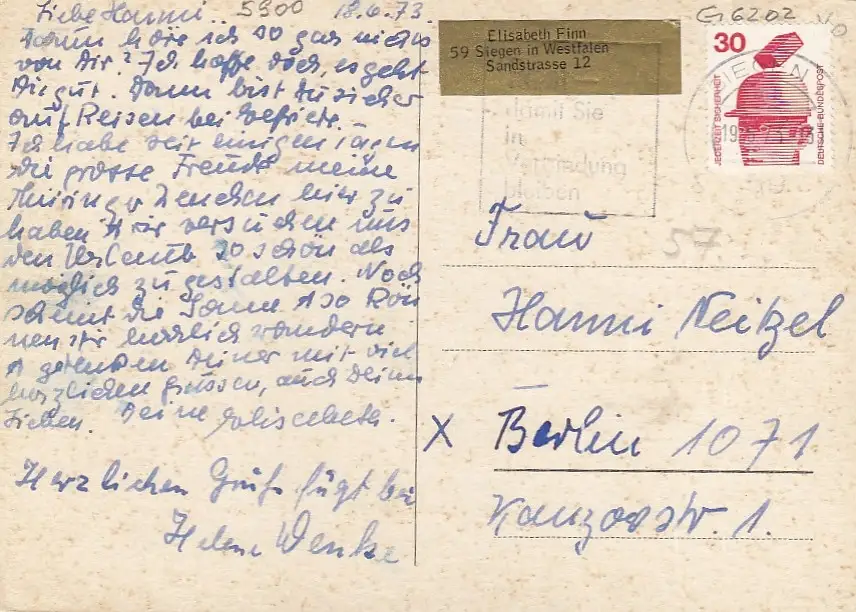 Liebe Hanni.. 5900 18.6.73.
Warum höre ich so gar nichts
von Dir? Ich hoffe doch, es geht
Dir gut. Dann bist Du sicher
auf Reisen bei
Ich habe seit einigen Tagen
die grosse Freude meine
Thüringer hier zu
haben & wir versuchen uns
den Urlaub so schön als
möglich zu gestalten. Noch
scheint die Sonne & so kön
nen wir herrlich wandern
& gedenken Deiner mit viel
herzlichen grüssen, auch Deinen
Lieben. Deine Elisabeth.
Herzlichen Gruß fügt bei
Helene Wenke
Elisabeth Finn
59 Siegen in Westfalen
Sandstrasse 12
damit Sie
in
Verbindung
bleiben
G 6202
30
JEDERZEIT SICHERHEIT
DEUTSCHE BUNDESPOST
SIEGEN
57.
Frau
Hanni Neitzel
X Berlin 1071
Kanzowstr. 1.